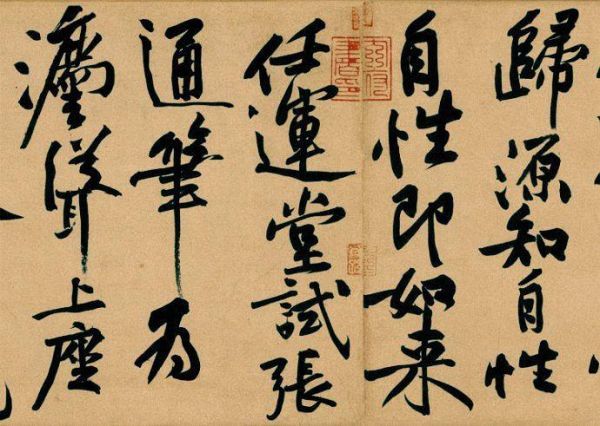 歸源知自性
自性即如来
任運堂試張
通筆為
灋聳上座